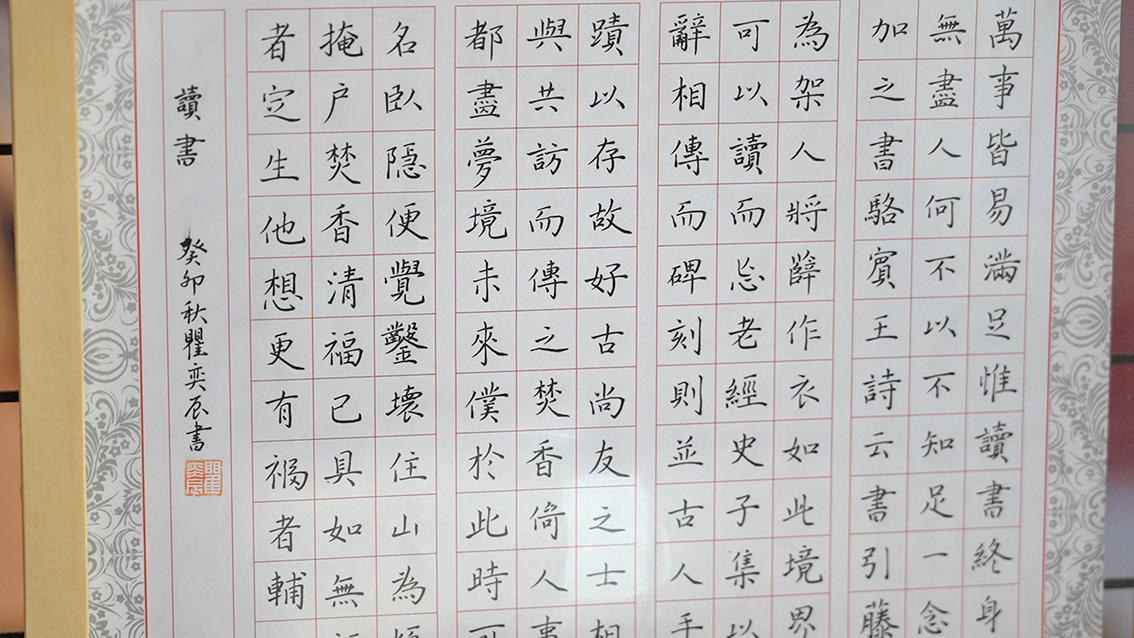 萬事皆易滿足惟讀書終身
無盡人何不以不知足一念
加之書駱賓王詩云書引藤
為架人將薜作衣如此境界
可以讀而忘老經史子集以
辭相傳而碑刻則並古人手
蹟以存故好古尚友之士相
與共訪而傳之焚香倚人事
都盡夢境未來僕於此時可
名臥隱便覺鑿壞住山為
掩户焚香清福已具如無
者定生他想更有福者輔
讀書 癸卯秋瞿奕辰書